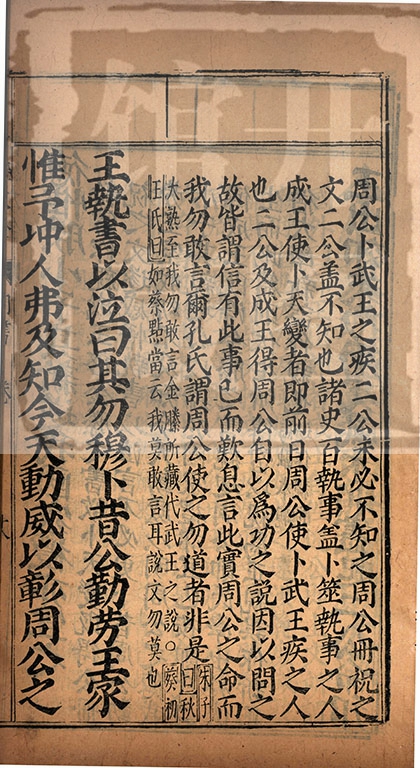 周公卜武王之疾二公未必不知之周公冊祝之
文二公盖不知也諸史百執事盖卜筮執事之人
成王使卜天變者即前日周公使卜武王疾之人
也二公及成王得周公自以爲功之說因以問之
故皆謂信有此事已而歎息言此實周公之命而
我勿敢言爾孔氏謂周公使之勿道者非是 朱子曰秋
大熟至我勿敢言金縢所藏代武王之說○蔡初
王氏曰如蔡點當云我莫敢言耳說文勿莫也
王執書以泣曰其勿穆卜昔公勤劳王家
惟予冲人弗及知今天動威以彰周公之